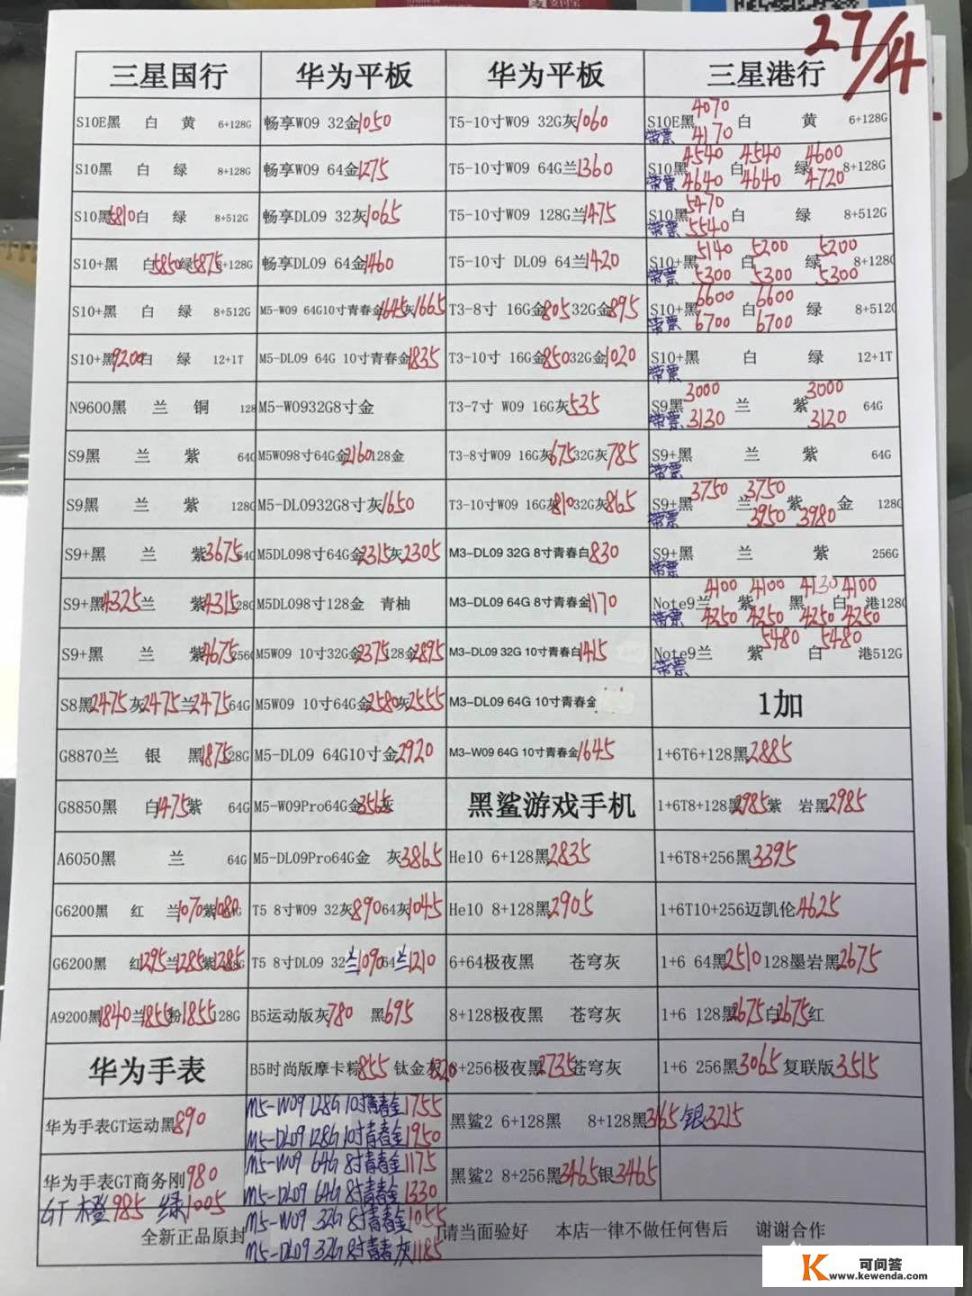 27/4
三星国行 华为平板 华为平板 三星港行
S10E黑 白 黄 6+128G 畅享W09 32金1050 T5-10寸W09 32G灰1060 S10E黑4070 白 黄 6+128G
带票 4170
S10黑 白 绿 8+128G 畅享W09 64金1275 T5-10寸W09 64G兰1360 S10黑4540 白4540 绿4600 8+128G
带票 4640 4640 4720
S10黑5810白 绿 8+512G 畅享DL09 32灰1065 T5-10寸W09 128G兰1475 S10黑5470 白 绿 8+512G
带票 5540
S10+黑 白5850绿5875 8+128G 畅享DL09 64金1460 T5-10寸 DL09 64兰1420 S10+黑5140 白5200 绿5200 8+128G
带票 5300 5300 5300
S10+黑 白 绿 8+512G M5-W09 64G10寸青春金1645灰1665 T3-8寸 16G金805 32G金895 S10+黑6600 白6600 绿 8+512G
带票 6700 6700
S10+黑9200白 绿 12+1T M5-DL09 64G 10寸青春金1835 T3-10寸 16G金850 32G金1020 S10+黑 白 绿 12+1T
带票
N9600黑 兰 铜 128 M5-W0932G8寸金 T3-7寸 W09 16G灰535 S9黑3000 兰 紫3000 64G
带票 3130 3120
S9黑 兰 紫 64G M5W098寸64G金2160 128金 T3-8寸W09 16G灰675 32G灰785 S9+黑 兰 紫 64G
带票
S9黑 兰 紫 128G M5-DL0932G8寸灰1650 T3-10寸W09 16G灰810 32G灰865 S9+黑3750 兰3750 紫 金 128G
带票 3950 3980
S9+黑 兰 紫3675 64G M5DL098寸64G金2315灰2305 M3-DL09 32G 8寸青春白830 S9+黑 兰 紫 256G
带票
S9+黑4325兰 紫4315 128G M5DL098寸128金 青柚 M3-DL09 64G 8寸青春金1170 Note9兰4100 紫4100 黑4130 白4100 港128G
带票 4250 4250 4250 4250
S9+黑 兰 紫4675 256G M5W09 10寸32G金2375 128金2895 M3-DL09 32G 10寸青春白1415 Note9兰 紫5480 白5480 港512G
带票
S8黑2475灰2475兰2475 64G M5W09 10寸64G金2580灰2555 M3-DL09 64G 10寸青春金 1加
G8870兰 银 黑1875 128G M5-DL09 64G10寸金2920 M3-W09 64G 10寸青春金1645 1+6T6+128黑2885
G8850黑 白1475紫 64G M5-W09Pro64G金3565灰 黑鲨游戏手机 1+6T8+128黑2985紫 岩黑2985
A6050黑 兰 64G M5-DL09Pro64G金 灰3865 He10 6+128黑2835 1+6T8+256黑3395
G6200黑 红 兰1070紫1080 T5 8寸W09 32灰890 64灰1045 He10 8+128黑2905 1+6T10+256迈凯伦4625
G6200黑 红1295兰1285紫1285 T5 8寸DL09 32兰1090 64兰1210 6+64极夜黑 苍穹灰 1+6 64黑2510 128墨岩黑2675
A9200黑1840兰1855粉1855 128G B5运动版灰780 黑695 8+128极夜黑 苍穹灰 1+6 128黑2675白2675红
华为手表 B5时尚版摩卡粽855 钛金灰 8+256极夜黑2735苍穹灰 1+6 256黑3065复联版3515
华为手表GT运动黑890 M5-W09 128G 10寸青春金1755 黑鲨2 6+128黑 8+128黑3165 银3215
M5-DL09 128G 10寸青春金1950
华为手表GT商务刚980 M5-W09 64G 8寸青春金1175 黑鲨2 8+256黑3465银3465
GT 橙985 绿1005 M5-DL09 64G 8寸青春金1330
全新正品原封 M5-W09 32G 8寸青春金1055 请当面验好 本店一律不做任何售后 谢谢合作
M5-DL09 32G 8寸青春灰1185
K 可问答
www.kewenda.com